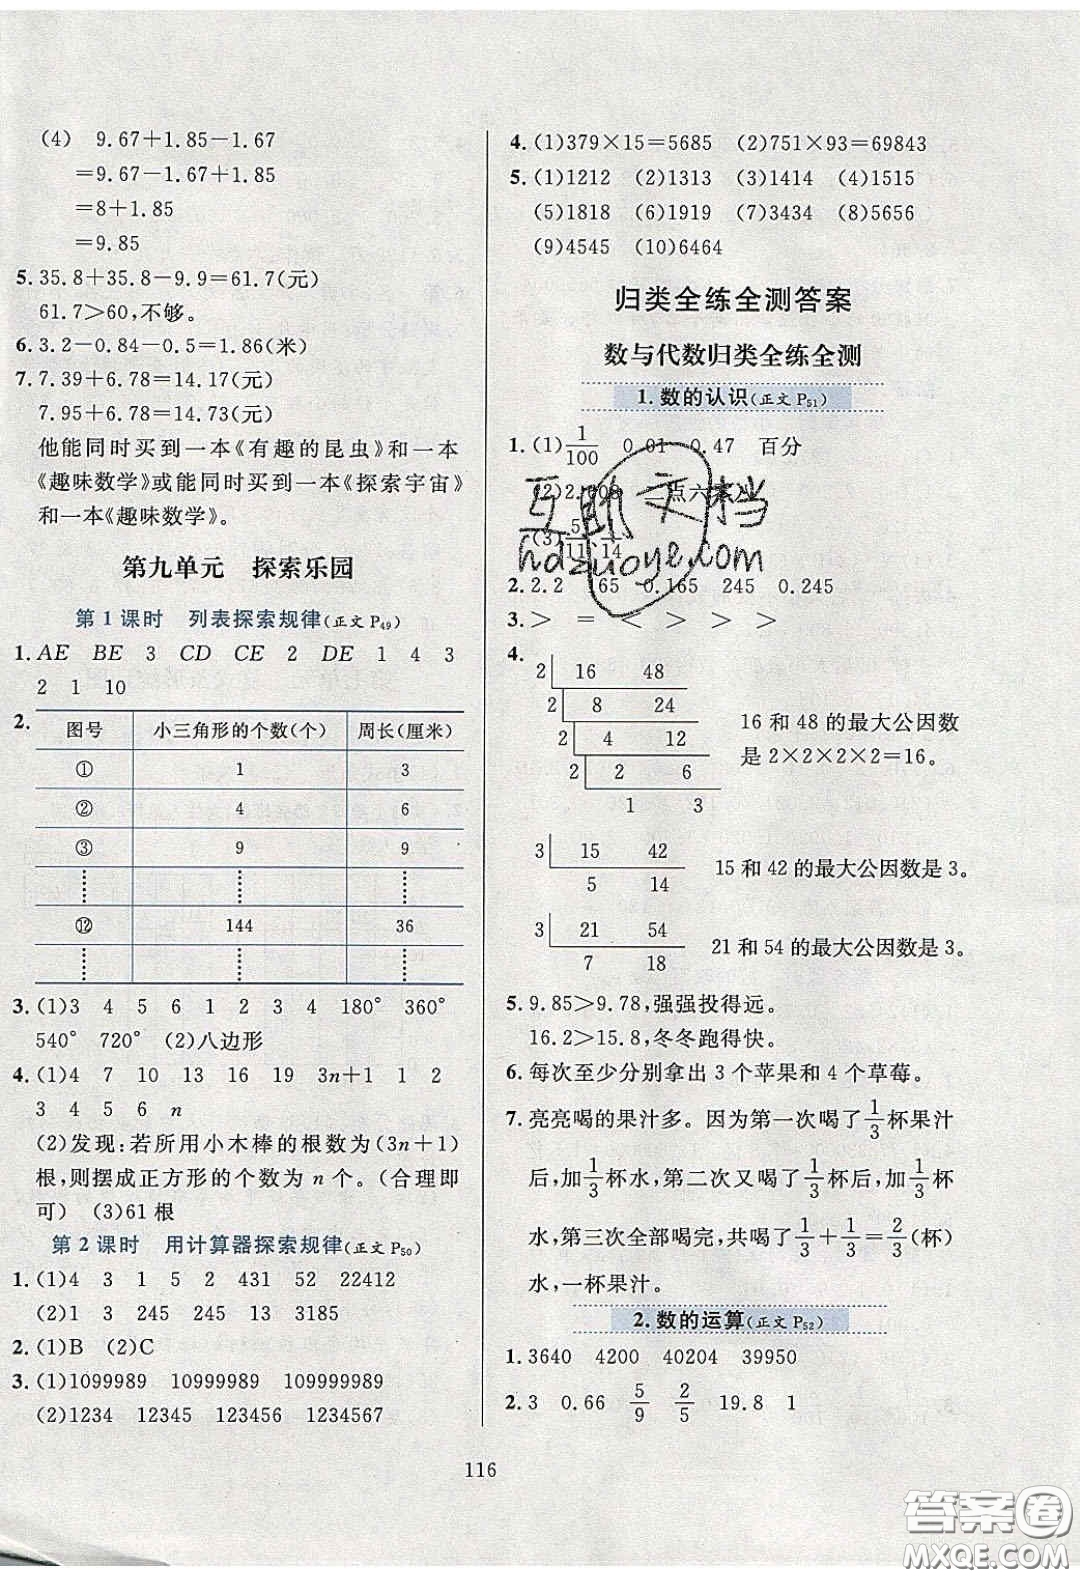 (4) 9.67+1.85-1.67
=9.67-1.67+1.85
=8+1.85
=9.85
5. 35.8+35.8-9.9=61.7(元)
61.7>60,不够。
6. 3.2-0.84-0.5=1.86(米)
7. 7.39+6.78=14.17(元)
7.95+6.78=14.73(元)
他能同时买到一本《有趣的昆虫》和一本
《趣味数学》或能同时买到一本《探索宇宙》
和一本《趣味数学》。
第九单元 探索乐园
第1课时 列表探索规律(正文P49)
1. AE BE 3 CD CE 2 DE 1 4 3
2 1 10
2.
图号 小三角形的个数(个) 周长(厘米)
① 1 3
② 4 6
③ 9 9
⋮ ⋮ ⋮
⑫ 144 36
⋮ ⋮ ⋮
3. (1)3 4 5 6 1 2 3 4 180° 360°
540° 720° (2)八边形
4. (1)4 7 10 13 16 19 3n+1 1 2
3 4 5 6 n
(2)发现:若所用小木棒的根数为(3n+1)
根,则摆成正方形的个数为 n 个。(合理即
可) (3)61根
第2课时 用计算器探索规律(正文P50)
1. (1)4 3 1 5 2 431 52 22412
(2)1 3 245 245 13 3185
2. (1)B (2)C
3. (1)1099989 10999989 109999989
(2)1234 12345 123456 1234567
4. (1)379×15=5685 (2)751×93=69843
5. (1)1212 (2)1313 (3)1414 (4)1515
(5)1818 (6)1919 (7)3434 (8)5656
(9)4545 (10)6464
归类全练全测答案
数与代数归类全练全测
1.数的认识(正文P51)
1. (1)1/100 0.01 0.47 百分
(2)2. 二点六
(3)5/11 /14
2. 2.2 65 0.165 245 0.245
3. > = < > > >
4.
2 16 48
2 8 24
2 4 12
2 2 6
1 3
16 和 48 的最大公因数
是 2×2×2×2=16。
3 15 42
5 14
15 和 42 的最大公因数是 3。
3 21 54
7 18
21 和 54 的最大公因数是 3。
5. 9.85>9.78,强强投得远。
16.2>15.8,冬冬跑得快。
6. 每次至少分别拿出 3 个苹果和 4 个草莓。
7. 亮亮喝的果汁多。因为第一次喝了1/3杯果汁
后,加1/3杯水,第二次又喝了1/3杯后,加1/3杯
水,第三次全部喝完,共喝了1/3+1/3=2/3(杯)
水,一杯果汁。
2.数的运算(正文P52)
1. 3640 4200 40204 39950
2. 3 0.66 5/9 2/5 19.8 1
116
互助文档
hdzuoye.com
答案圈
MXQE.COM